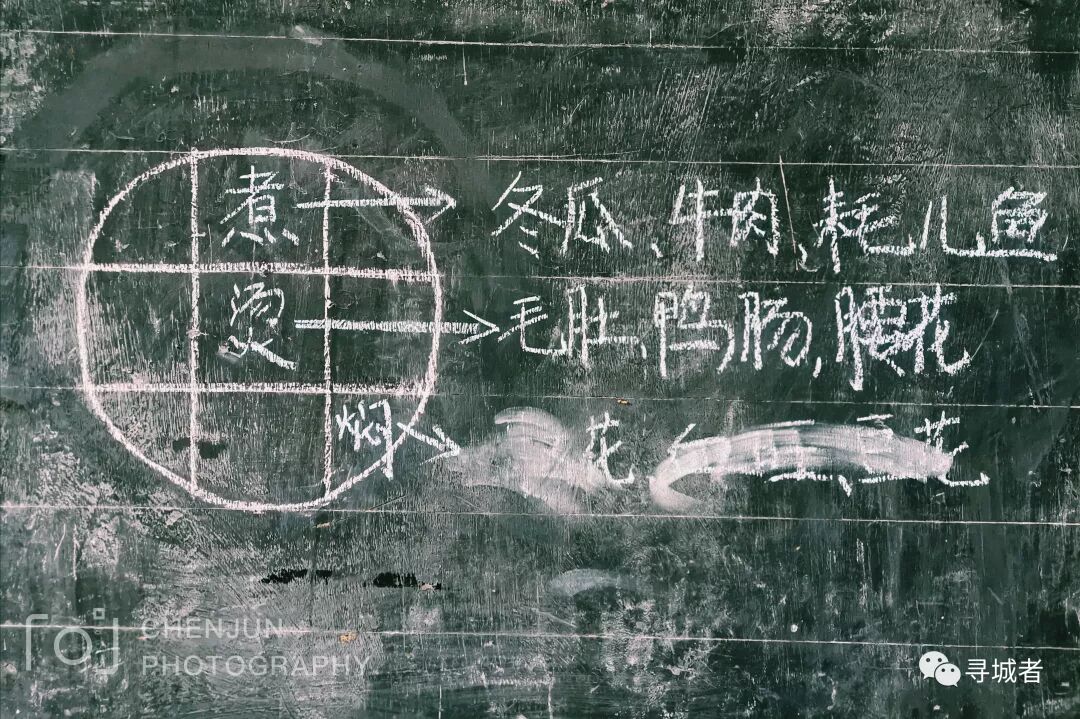 煮 → 冬瓜、牛肉、耗儿鱼
烫 → 毛肚、鸭肠、腰花
焖 → 花 花
roj CHENJUN
PHOTOGRAPHY
寻城者